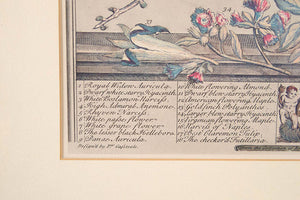 33
34
1 Royal Widow Auricula.
2 Dwarf white starry Hyacinth
3 White Bosleman Narciss.
4 High Admiral Anemone
5 Rhyven Narciss
6 White passe flower
7 White grape flower
8 The lesser black Hellebore
9 Danae Auricula.
10 White flowering Almond
11 Dwarf blew starry Hyacinth
12 American flowering Maple.
13 Goldfinch Polyanthos
14 Larger blew starry Hyacinth
15 Virginian flowering Maple
16 Narciss of Naples
17 Best Claremon Tulip
18 The checker'd Fritillaria.
Design'd by Pr. Casteels.